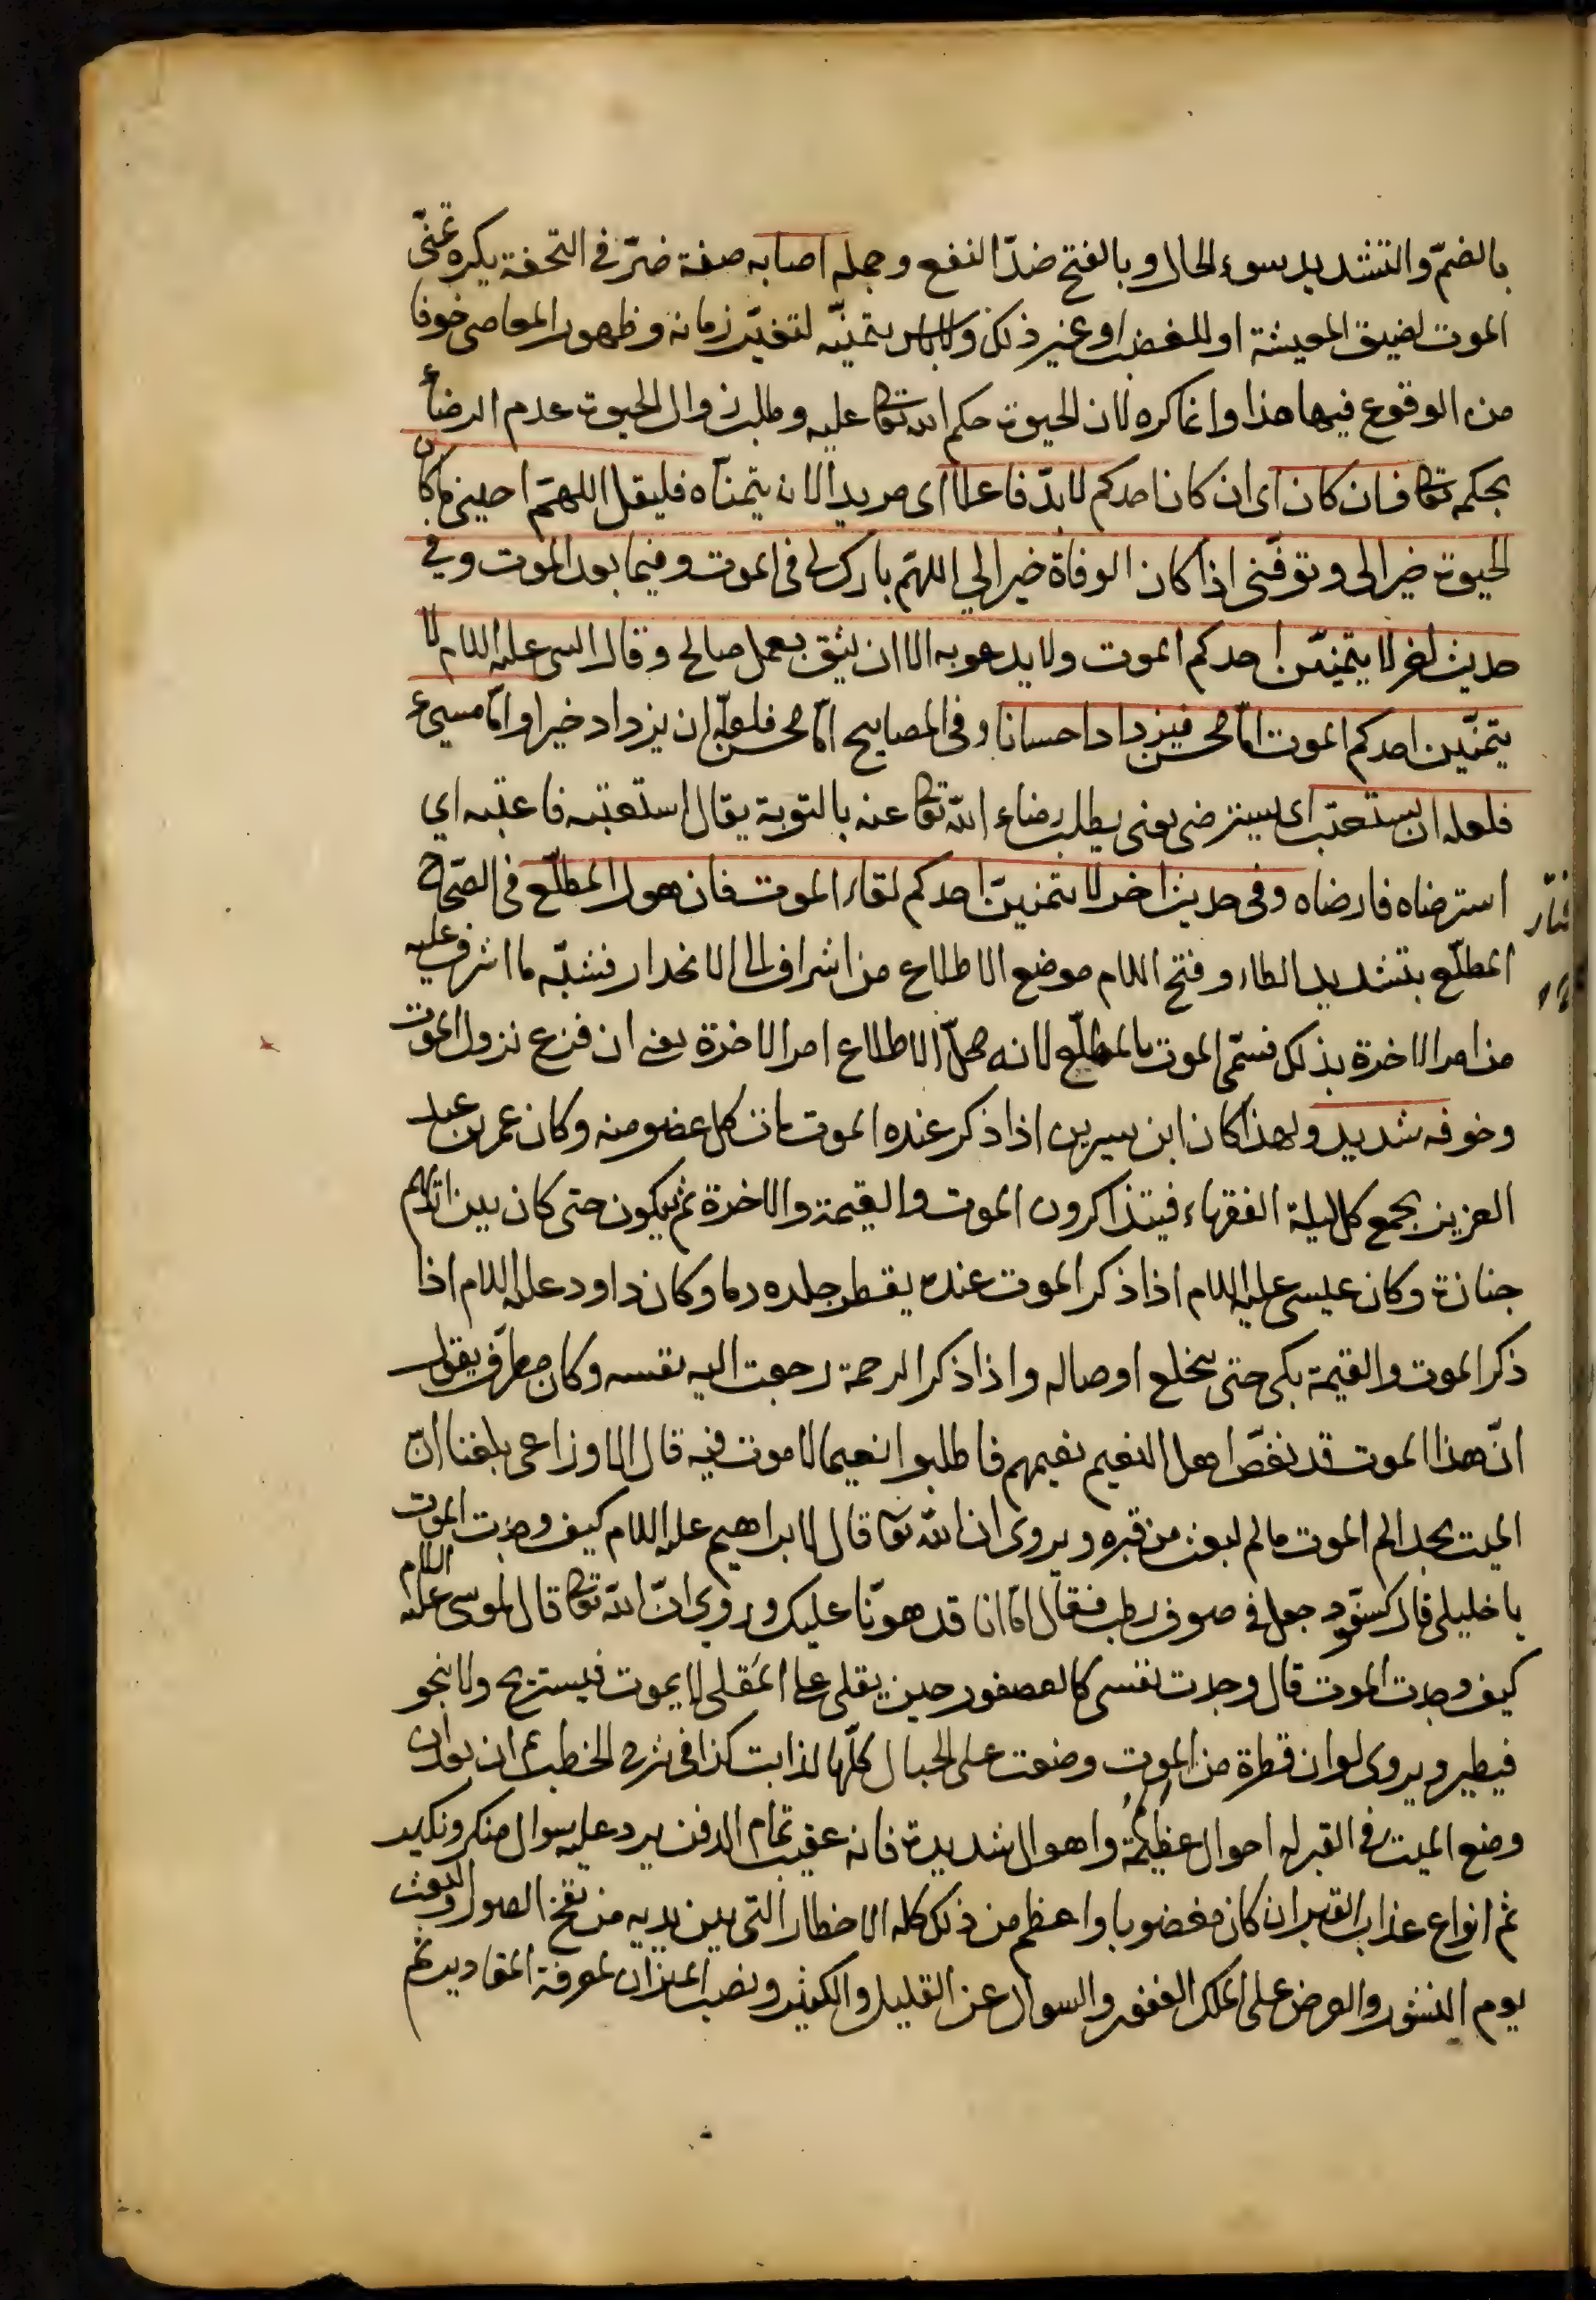 بالضمّ والتشديد سوء الحال وبالفتح ضدّ النفع وجملة اصابه صفة ضرّ في التحفة يكره تمنّى
الموت لضيق المعيشة او للغضب او غير ذلك ولا باس بتمنيّه لتغيّر زمانه وظهور المعاصى خوفا
من الوقوع فيها هذا وانما كره لان الحيوة حكم الله تعا عليه وطلب زوال الحيوة عدم الرضاء
بحكمه تعا فان كان اى ان كان احدكم لا بدّ فاعلا اى مريدا لان يتمنّاه فليقل اللهمّ احينى ما كان
الحيوة خيرا لى وتوفّنى اذا كان الوفاة خيرا لي اللهمّ بارك لى فى الموت وفيما بعد الموت وفي
حديث اخر لا يتمنيّن احدكم الموت ولا يدعو به الا ان يثق بعمل صالح وقال النبى عليه السلام لا
يتمنّين احدكم الموت امّا محسن فيزداد احسانا وفى المصابيح امّا محسن فلعلّه ان يزداد خيرا وامّا مسيء
فلعله ان يستعتب اى يسترضى يعنى يطلب رضاء الله تعا عنه بالتوبة يقال استعتبه فاعتبه اي
استرضاه فارضاه وفى حديث اخر لا يتمنينّ احدكم لقاء الموت فان هول المطلّع فى الصّحاح
المطلّع بتشديد الطاء وفتح اللام موضع الاطلاع من اشراف الى الانحدار فشبّه ما اشرف عليه
من امر الاخرة بذلك فسمّى الموت بالمطلّع لانه محلّ الاطلاع امر الاخرة يعنى ان فزع نزول الموت
وخوفه شديد ولهذا كان ابن سيرين اذا ذكر عنده الموت مات كل عضو منه وكان عمر بن عبد
العزيز يجمع كل ليلة الفقهاء فيتذاكرون الموت والقيمة والاخرة ثم يبكون حتى كان بين ايديهم
جنازة وكان عيسى عليه السلام اذا ذكر الموت عنده يقطر جلده دما وكان داود عليه السلام اذا
ذكر الموت والقيمة بكى حتى ينخلع اوصاله واذا ذكر الرحمة رجعت اليه نفسه وكان مطرّف يقول
انّ هذا الموت قد نغصّ اهل النعيم نعيمهم فاطلبوا نعيما لا موت فيه قال الاوزاعى بلغنا انّ
الميت يجد الم الموت ما لم يبعث من قبره ويروى ان الله تعا قال لابراهيم عليه السلام كيف وجدت الموت
يا خليلى قال كسفّود جعل في صوف رطب فقال امّا انا قد هوّنا عليك وروي انّ الله تعا قال لموسى عليه السلام
كيف وجدت الموت قال وجدت نفسى كالعصفور حين يقلى على المَقلى لا يموت فيستريح ولا ينجو
فيطير ويروى لو ان قطرة من الموت وضعت على الجبال كلّها لذابت كذا فى شرح الخطب ثم ان بعد ان
وضع الميت في القبر له احوال عظيمة واهوال شديدة فانه عقيب تمام الدفن يرد عليه سوال منكر ونكير
ثم انواع عذاب القبر ان كان مغضوبا واعظم من ذلك كله الاخطار التى بين يديه من نفخ الصور والبعث
يوم النشور والعرض على الملك الغفور والسوال عن القليل والكثير ونصب الميزان لمعرفة المقادير ثم